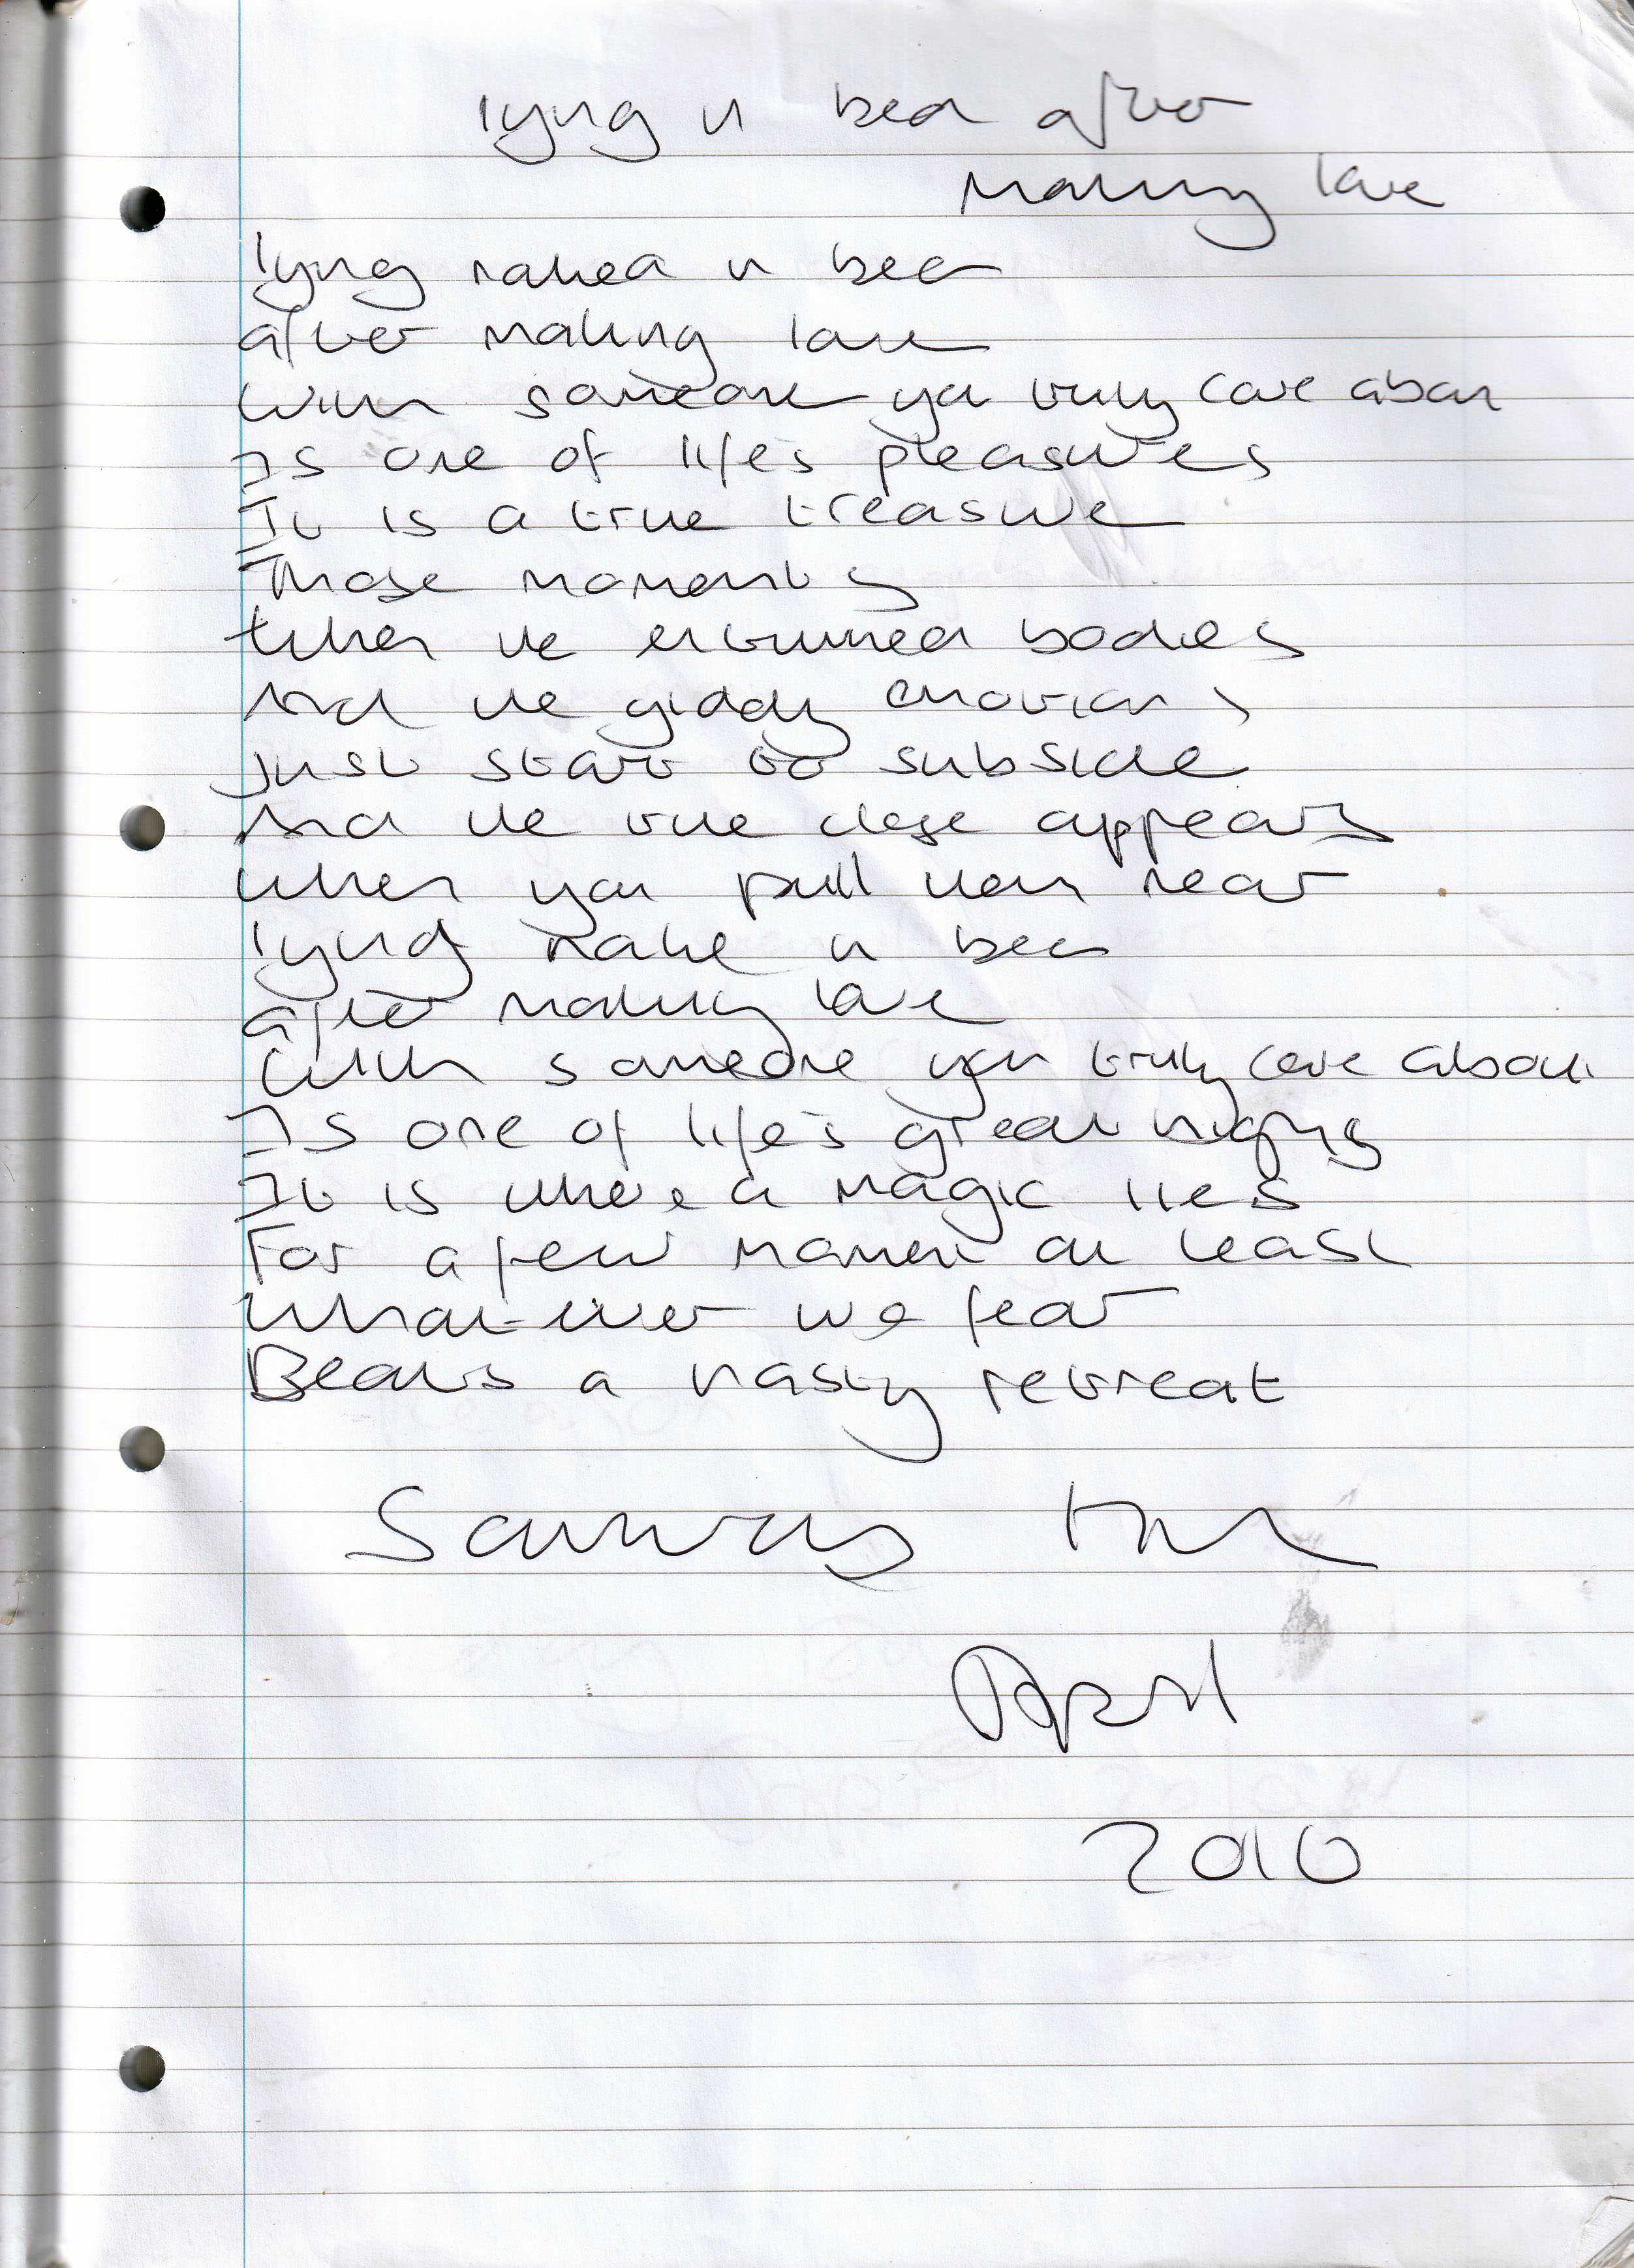 lying in bed after
making love
lying naked in bed
after making love
with someone you truly care about
Is one of life's pleasures
It is a true treasure
Those moments
When the entwined bodies
And the giddy emotions
Just start to subside
And the true close appears
When you pull them near
lying naked in bed
after making love
With someone you truly care about
Is one of life's great highs
It is where a magic lies
For a few moment at least
Whatever we fear
Beats a hasty retreat
April
2010